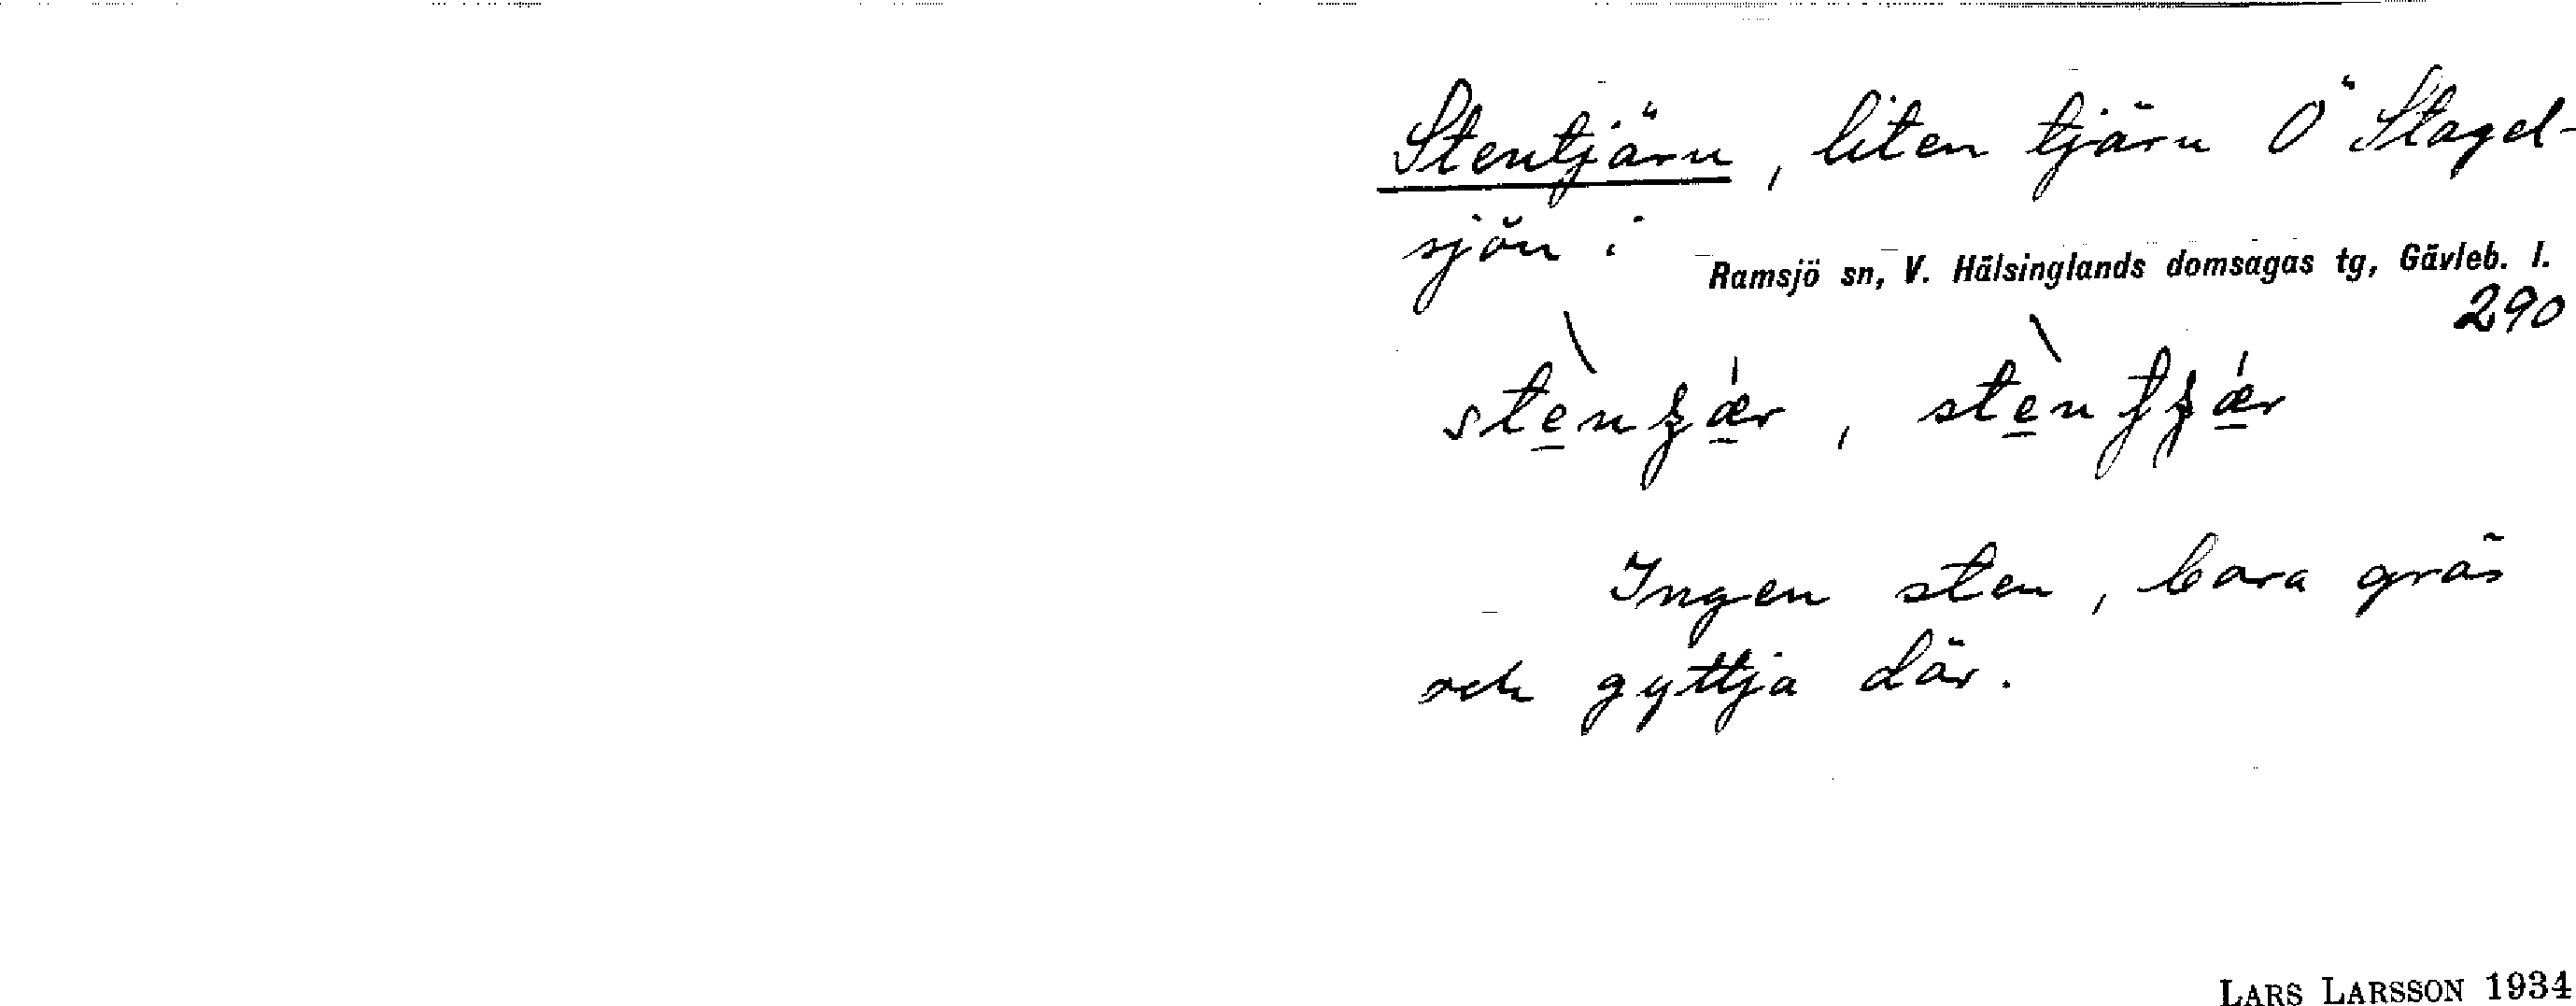 Stentjärn, liten tjärn Ö Stagel-
sjön i Ramsjö sn, V. Hälsinglands domsagas tg, Gävleb. l.
290
Ingen sten, bara gräs
och gyttja där.
LARS LARSSON 1934